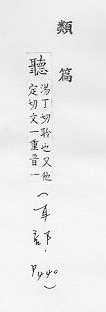 類篇
聽
湯丁切聆也又他
定切文一重音一
(耳部下, P440)